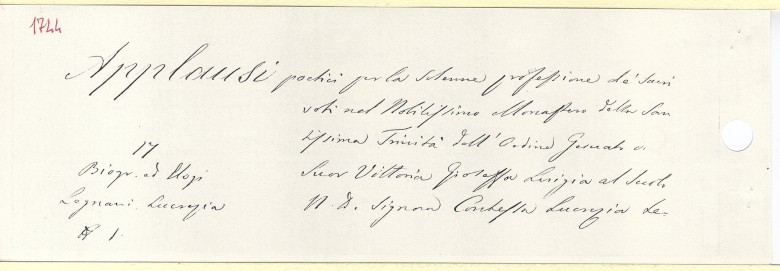 1744
Applausi poetici per la solenne professione de' sacri
voti nel Nobilissimo Monastero della San
tissima Trinità dell'Ordine Gesuato di
Suor Vittoria Gioseffa Luigia al Secolo
N. D. Signora Contessa Lucrezia Le-
17
Biogr. ed Elogi
Legnani Lucrezia
N 1.